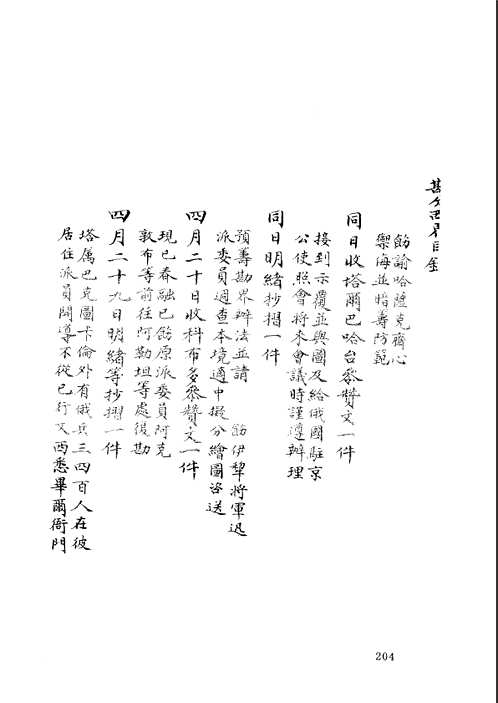 飭諭哈薩克齊心
禦侮並暗壽防範
同日收塔爾巴哈台參贊文一件
接到示覆並輿圖及給俄國駐京
公使照會將來會議時謹遵辦理
同日明緒抄摺一件
預籌勘界辦法並請 飭伊犂將軍迅
派委員週查本境適中擬分繪圖咨送
四月二十日收科布多參贊文一件
現已春融已飭原派委員阿克
敦布等前往阿勒坦等處復勘
四月二十九日明緒等抄摺一件
塔属巴克圖卡倫外有俄兵三四百人在彼
居住派員開導不從已行文西悉畢爾衙門
204